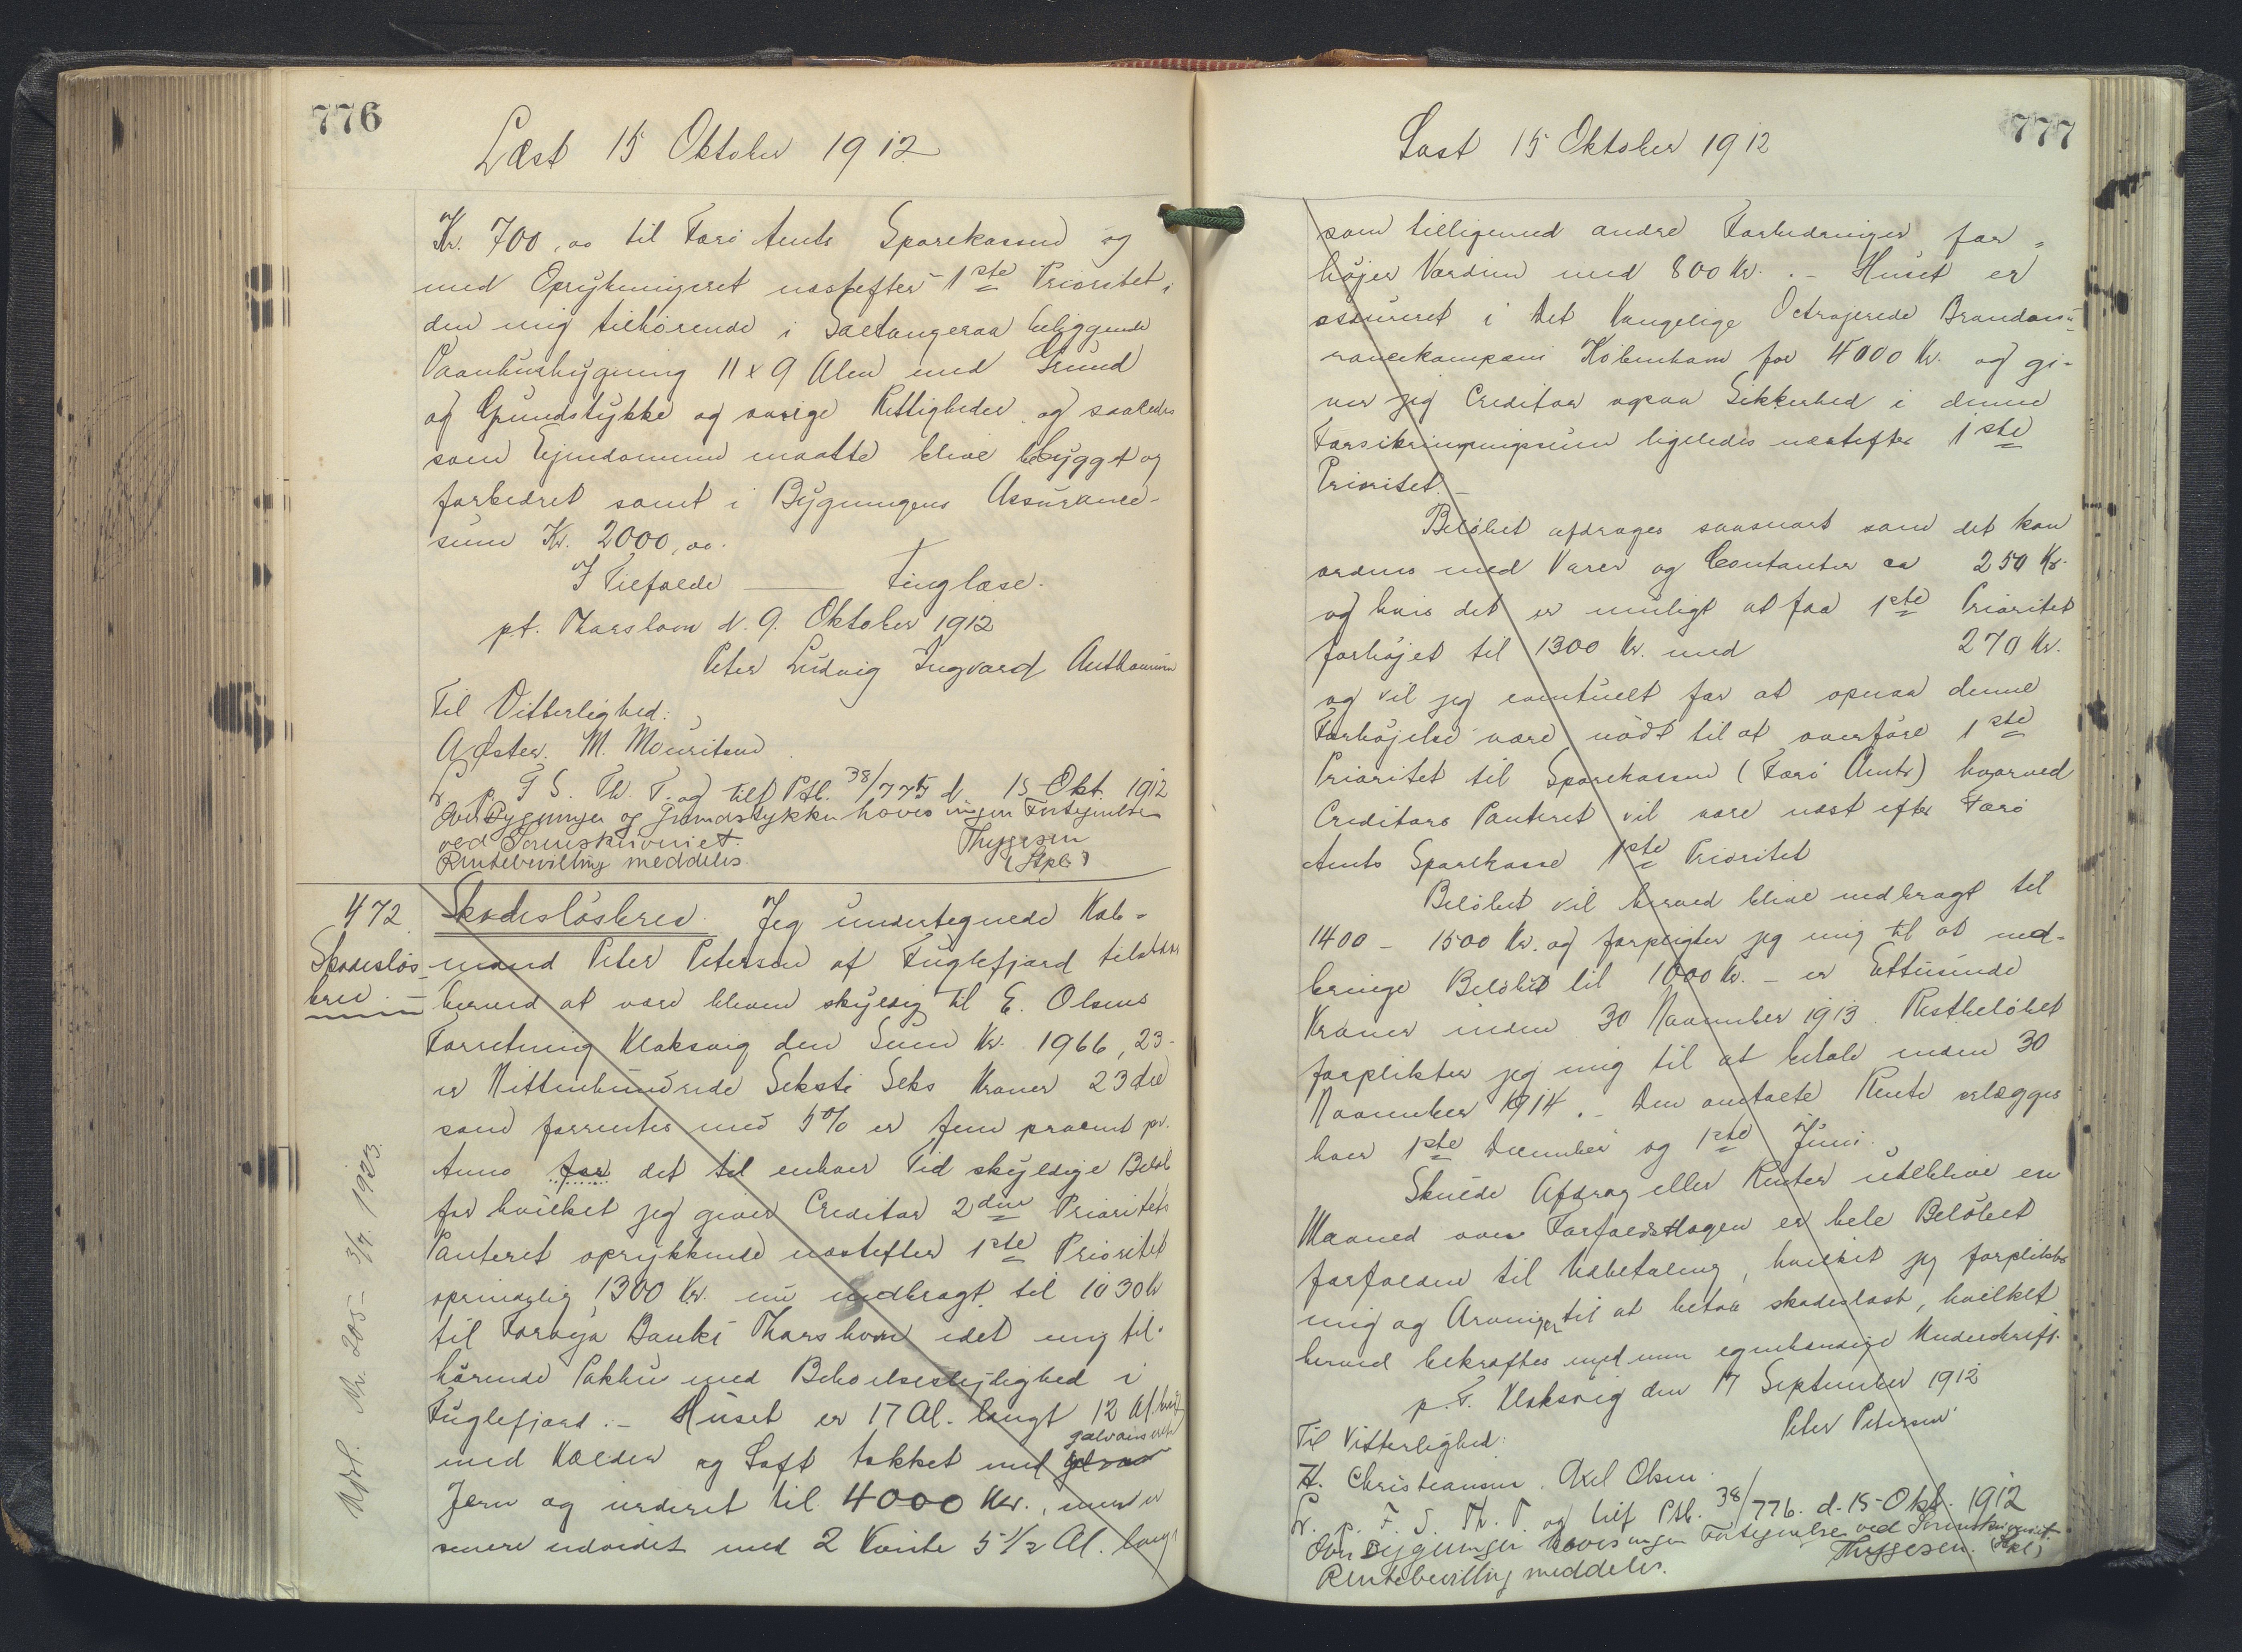 776
Læst 15 Oktober 1912
Kr. 700,00 til Færø Amts Sparekassen og
med Oprykningsret næstefter 1ste Prioritet,
den mig tilhørende i Saltangeraa beliggende
Vaanhusbygning 11 x 9 Alen med Grund
og Grundstykke og øvrige Rettigheder og saaledes
som Ejendommen maatte blive bebygget og
forbedret samt i Bygningens Assurance-
sum Kr. 2000,00.
I Tilfælde ——— Tinglæse.
p.t. Thorshavn d. 9. Oktober 1912
Peter Ludvig Ingvard Anthonsen
Til Vitterlighed:
A Øster. M. Mouritsen
L. p. F. S. Th. T. og tilf Ptb. 38/775 d 15 Okt 1912
Over Bygninger og Grundstykker haves ingen Fortegnelse
ved Sorenskriveriet.
Thygesen
Rentebevilling meddeles.
(Stpl.)
472
Skadesløs-
brev.
Skadesløsbrev. Jeg undertegnede Køb-
mand Peter Petersen af Fuglefjord tilstaar
herved at være bleven skyldig til E. Olsens
Forretning Klaksvig den Sum Kr. 1966,23-
er Nittenhundrede Seksti Seks Kroner 23 Øre
som forrentes med 5% er fem procent pr.
Anno for det til enhver Tid skyldige Beløb
for hvilket jeg giver Creditor 2den Prioritets
Panteret oprykkende næstefter 1ste Prioritet
oprindelig 1300 Kr. nu nedbragt til 1030 Kr
til Føroya Banki Thorshavn i det mig til-
hørende Pakhus med Beboelseslejlighed i
Fuglefjord. - Huset er 17 Al. langt 12 Al. bredt
galvaniseret
med Kælder og Loft takket med
Jern og vurderet til 4000 Kr., men er
senere udvidet med 2 Kviste 5 1/2 Al. langt
Udsl. Nr. 205- 3/7. 1923.
777
Læst 15 Oktober 1912
som tilligemed andre Forbedringer for-
højer Værdien med 800 Kr. - Huset er
assureret i Det Kongelige Octrojerede Brandassu-
rancekompani København for 4000 Kr. og gi-
ver jeg Creditor ogsaa Sikkerhed i denne
Forsikringssum ligeledes næstefter 1ste
Prioritet. -
Beløbet afdrages saasnart som det kan
ordnes med Varer og Contanter ca 250 Kr.
og hvis det er muligt at faa 1ste Prioritet
forhøjet til 1300 Kr. med 270 Kr.
og vil jeg eventuelt for at opnaa denne
Forhøjelse være nødt til at overføre 1ste
Prioritet til Sparekassen (Færø Amts) hvorved
Creditors Panteret vil være næst efter Færø
Amts Sparekasse 1ste Prioritet
Beløbet vil herved blive nedbragt til
1400 - 1500 Kr. og forpligter jeg mig til at ned-
bringe Beløbet til 1000 Kr. - er Ettusinde
Kroner inden 30 November 1913. Restbeløbet
forplikter jeg mig til at betale inden 30
November 1914. - Den omtalte Rente erlægges
hver 1ste December og 1ste Juni.
Skulde Afdrag eller Renter udeblive en
Maaned over Forfaldsdagen er hele Beløbet
forfalden til Udbetaling, hvilket jeg forplikter
mig og Arvinger til at betale skadesløst, hvilket
herved bekræftes med min egenhændige Underskrift.
p. T. Klaksvig den 17 September 1912
Peter Petersen
Til Vitterlighed:
H. Christiansen. Axel Olsen.
L. p. F. S. Th. T. og tilf Ptb. 38/776. d. 15 Okt. 1912
Over Bygninger haves ingen Fortegnelse ved Sorenskriveriet.
Thygesen. (Stpl.)
Rentebevilling meddeles.